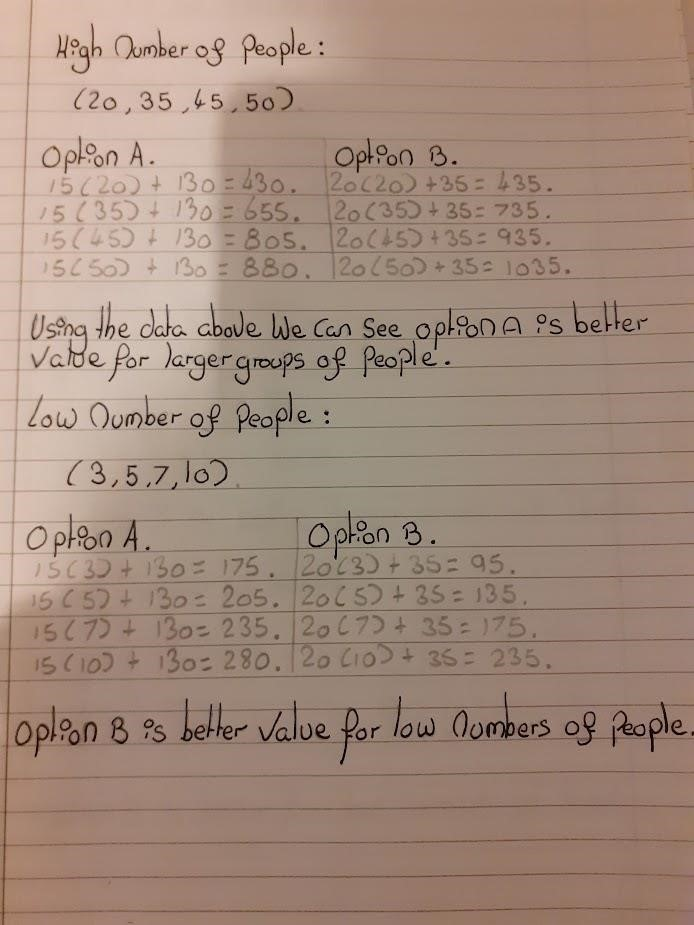 High Number of People:
(20, 35, 45, 50)
Option A. Option B.
15(20) + 130 = 430. 20(20) + 35 = 435.
15(35) + 130 = 655. 20(35) + 35 = 735.
15(45) + 130 = 805. 20(45) + 35 = 935.
15(50) + 130 = 880. 20(50) + 35 = 1035.
Using the data above We Can See option A is better
Value for larger groups of People.
Low Number of People:
(3, 5, 7, 10)
Option A. Option B.
15(3) + 130 = 175. 20(3) + 35 = 95.
15(5) + 130 = 205. 20(5) + 35 = 135.
15(7) + 130 = 235. 20(7) + 35 = 175.
15(10) + 130 = 280. 20(10) + 35 = 235.
Option B is better Value for low Numbers of People.